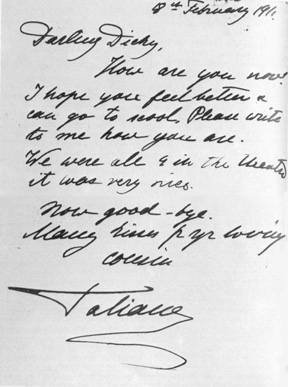 8th February 191
Darling Dicky,
How are you now?
I hope you feel better &
can go to scool. Please write
to me how you are.
We were all 4 in the theatre
it was very nice.
Now good-bye.
Many kisses fr yr loving
cousin
Tatiana